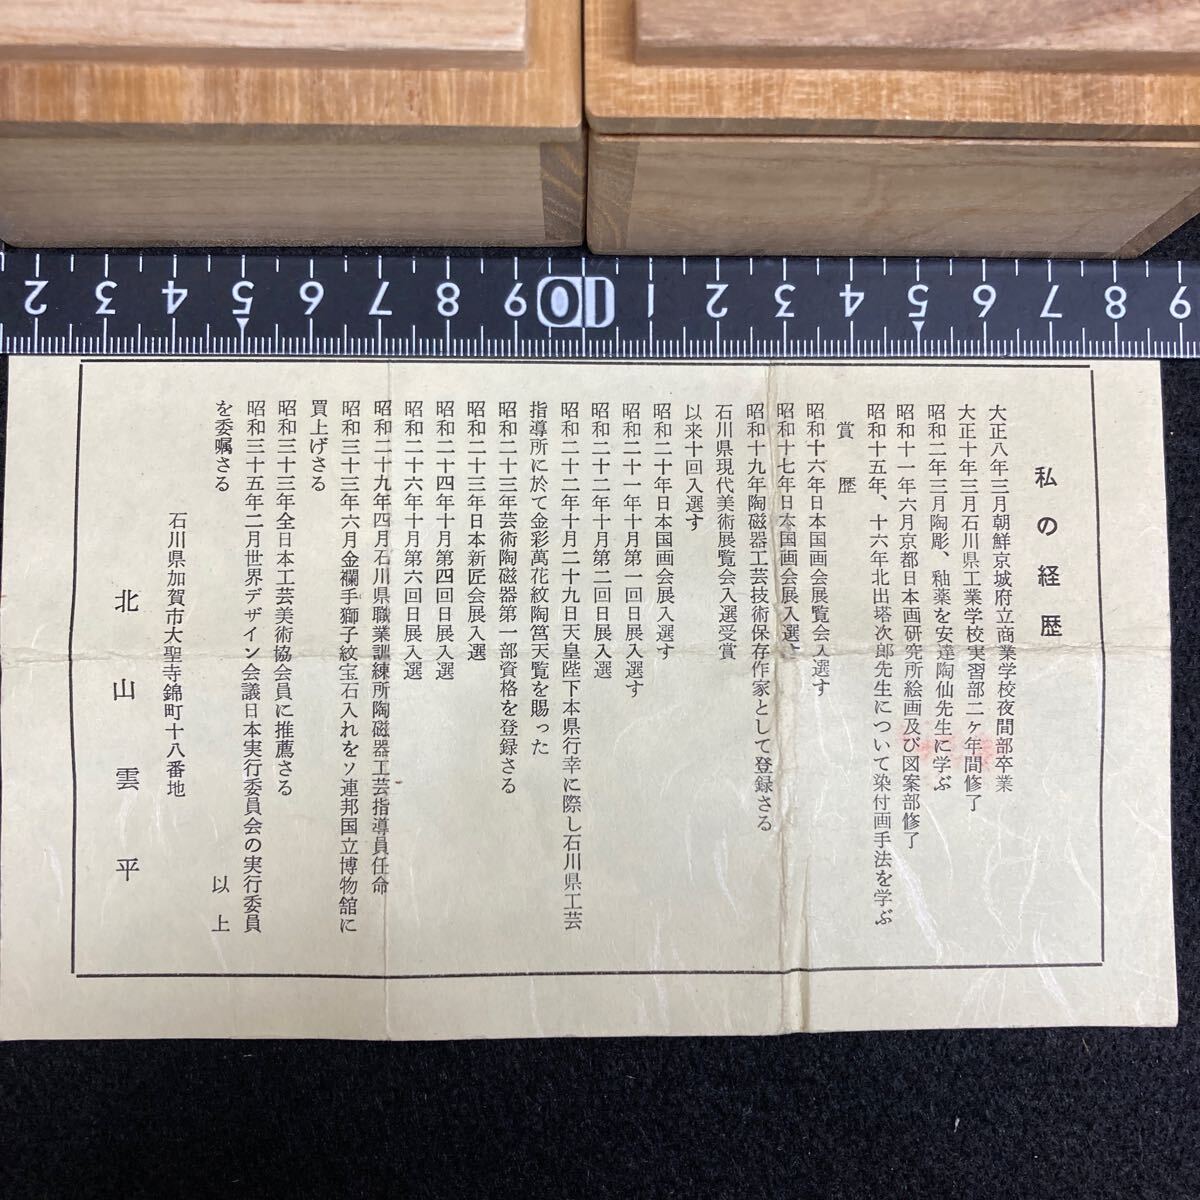 私の経歴
大正八年三月朝鮮京城府立商業学校夜間部卒業
大正十年三月石川県工業学校実習部二ヶ年間修了
昭和二年三月陶彫、釉薬を安達陶仙先生に学ぶ
昭和十一年六月京都日本画研究所絵画及び図案部修了
昭和十五年、十六年北出塔次郎先生について染付画手法を学ぶ
賞歴
昭和十六年日本国画会展覧会入選す
昭和十七年日本国画会展入選す
昭和十九年陶磁器工芸技術保存作家として登録さる
石川県現代美術展覧会入選受賞
以来十回入選す
昭和二十年日本国画会展入選す
昭和二十一年十月第一回日展入選す
昭和二十二年十月第二回日展入選
昭和二十二年十月二十九日天皇陛下本県行幸に際し石川県工芸
指導所に於て金彩萬花紋陶筥天覧を賜った
昭和二十三年芸術陶磁器第一部資格を登録さる
昭和二十三年日本新匠会展入選
昭和二十四年十月第四回日展入選
昭和二十六年十月第六回日展入選
昭和二十九年四月石川県職業訓練所陶磁器工芸指導員任命
昭和三十三年六月金襴手獅子紋宝石入れをソ連邦国立博物舘に
買上げさる
昭和三十三年全日本工芸美術協会員に推薦さる
昭和三十五年二月世界デザイン会議日本実行委員会の実行委員
を委嘱さる
以上
石川県加賀市大聖寺錦町十八番地
北山雲平
2 3 4 5 6 7 8 9 10 1 2 3 4 5 6 7 8 9